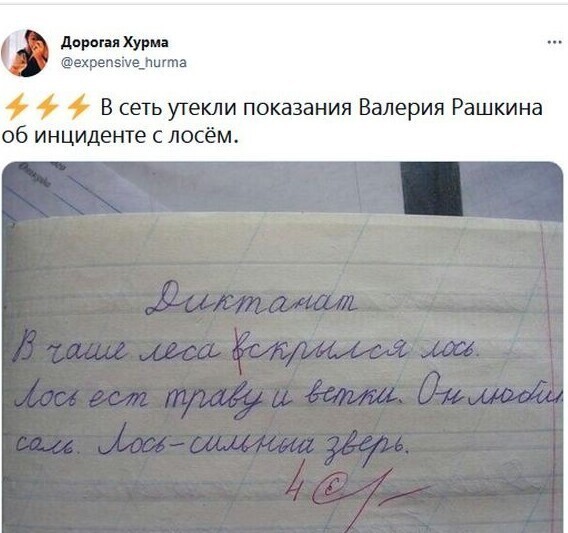 Дорогая Хурма
@expensive_hurma
⚡⚡⚡ В сеть утекли показания Валерия Рашкина
об инциденте с лосём.
Диктанат
В чаше леса вскрылся лось.
Лось ест траву и ветки. Он любит
соль. Лось-сильный зверь.
4